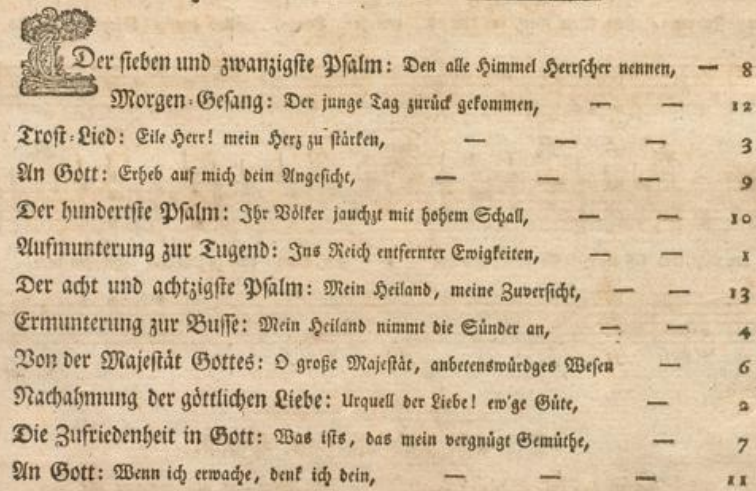 Der sieben und zwanzigste Psalm: Den alle Himmel Herrscher nennen, — 8
Morgen-Gesang: Der junge Tag zurück gekommen, — — 12
Trost-Lied: Eile Herr! mein Herz zu stärken, — — — 3
An Gott: Erheb auf mich dein Angesicht, — — — 9
Der hundertste Psalm: Ihr Völker jauchzt mit hohem Schall, — — 10
Aufmunterung zur Tugend: Ins Reich entfernter Ewigkeiten, — — 1
Der acht und achtzigste Psalm: Mein Heiland, meine Zuversicht, — — 13
Ermunterung zur Busse: Mein Heiland nimmt die Sünder an, — — 4
Von der Majestät Gottes: O große Majestät, anbetenswürdges Wesen — 6
Nachahmung der göttlichen Liebe: Urquell der Liebe! ew'ge Güte, — 2
Die Zufriedenheit in Gott: Was ists, das mein vergnügt Gemüthe, — 7
An Gott: Wenn ich erwache, denk ich dein, — — — 11